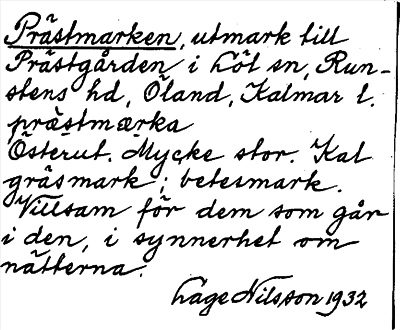 Prästmarken, utmark till
Prästgården i Löt sn, Run-
stens hd, Öland, Kalmar l.
præstmærka
Österut. Mycke stor. Kal
gräsmark; betesmark.
Villsam för dem som går
i den, i synnerhet om
nätterna.
Låge Nilsson 1932